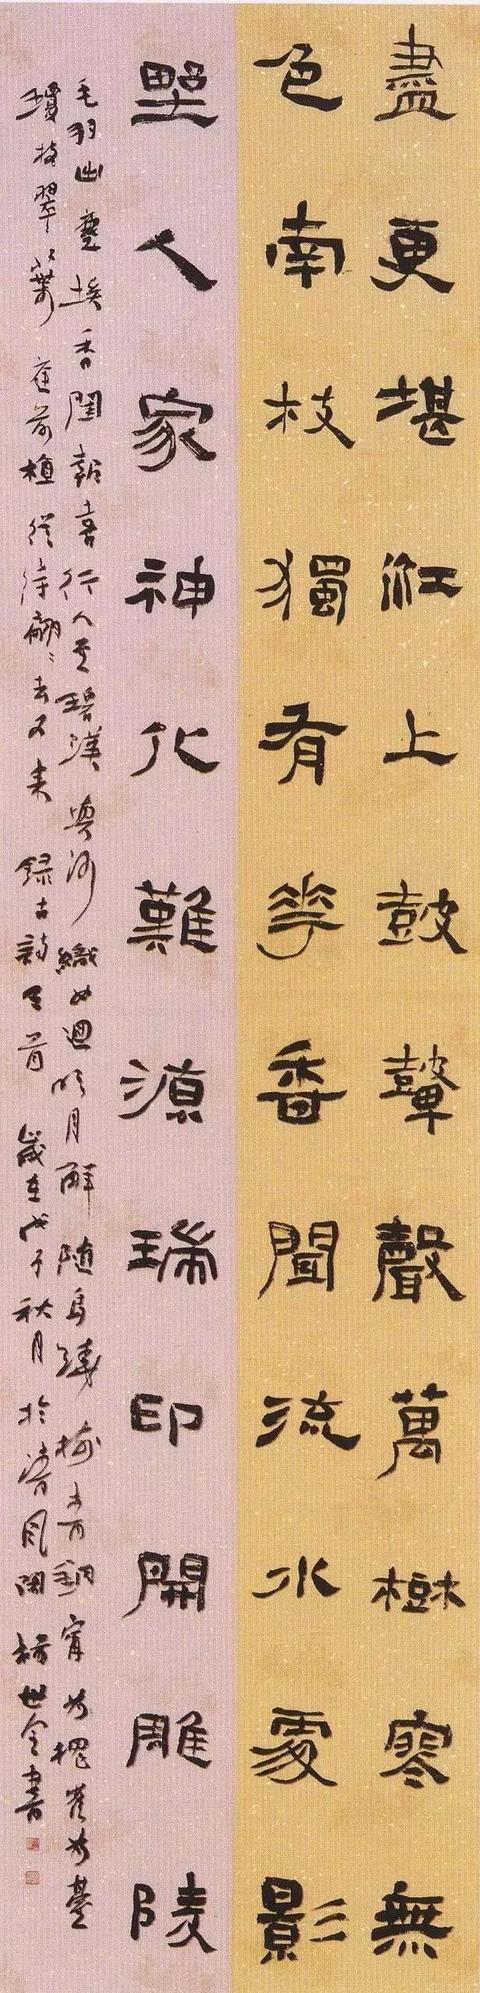 盡更堪江上鼓鼙聲萬樹寒無
色南枝獨有花香聞流水處影
埜人家神化難源瑞印開雕陵
毛羽出塵埃香閨報喜行人至碧漢河織女迴明月解隨烏繞樹青銅甯愧雀為臺
瓊枝翠葉庭前植從待翩〻去又來 錄古詩二首 歲在戊子秋月於清風閣 楊世全書